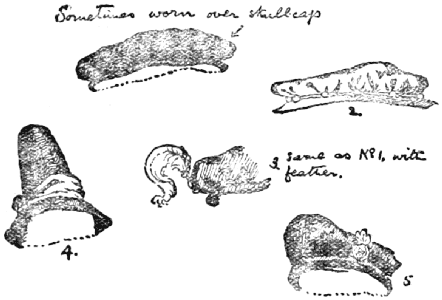 Sometimes worn over skullcap
2.
3 same as No 1, with
feather.
4.
5